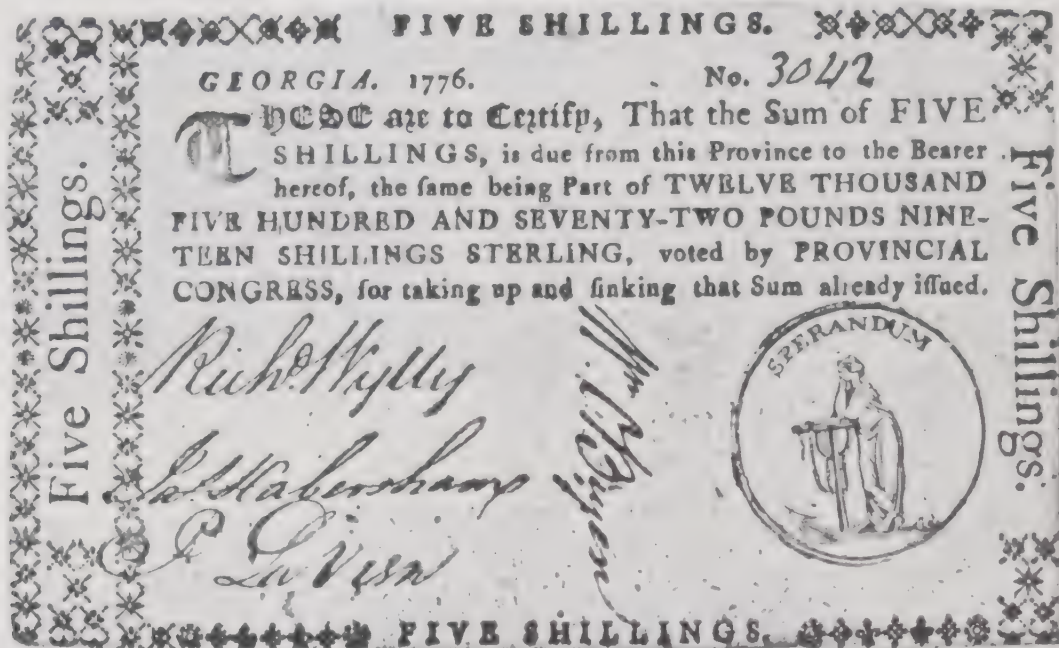 FIVE SHILLINGS.
GEORGIA. 1776.
No. 3042
THESE are to Certify, That the Sum of FIVE
SHILLINGS, is due from this Province to the Bearer
hereof, the same being Part of TWELVE THOUSAND
FIVE HUNDRED AND SEVENTY-TWO POUNDS NINE-
TEEN SHILLINGS STERLING, voted by PROVINCIAL
CONGRESS, for taking up and sinking that Sum already issued.
Five Shillings.
Five Shillings.
Richd. Wylly
Jas. Habersham
SPERANDUM
FIVE SHILLINGS.